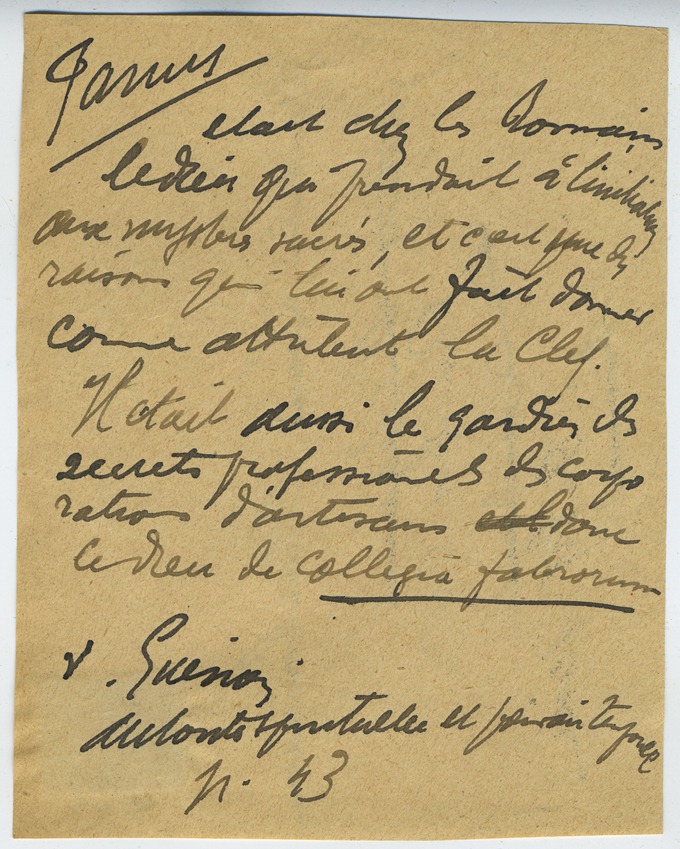 Janus
était chez les Romains
le dieu qui présidait à l'initiation
aux mystères sacrés, et c'est une des
raisons qui lui ont fait donner
comme attribut la Clef.
Il était aussi le gardien des
secrets professionnels des corpo
rations d'artisans donc
le dieu de collegia fabrorum
v. Guénon
autorité spirituelle et pouvoir temporel
p. 43